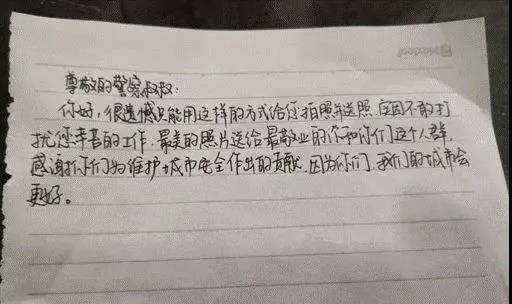 尊敬的警察叔叔:
你好,很遗憾只能用这样的方式给您拍照并送照,应因不敢打
扰您辛苦的工作,最美的照片送给最敬业的你和你们这个人群,
感谢你们为维护城市安全作出的贡献,因为你们,我们的城市会
更好。